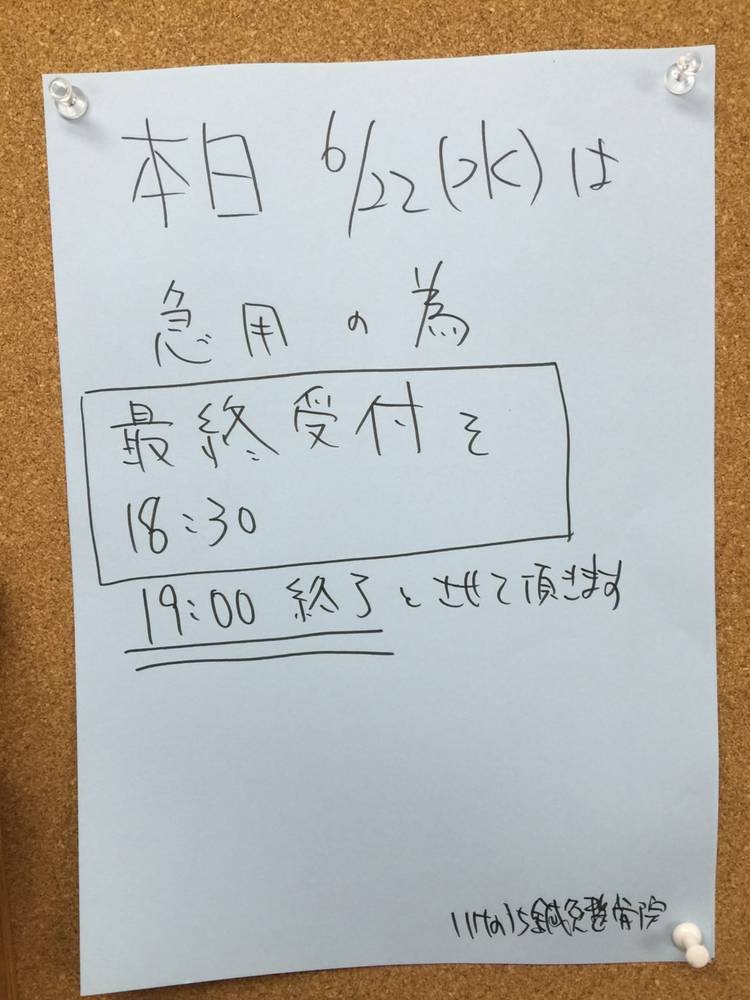 本日 6/22(水)は
急用の為
最終受付を
18:30
19:00 終了とさせて頂きます
鍼灸整骨院